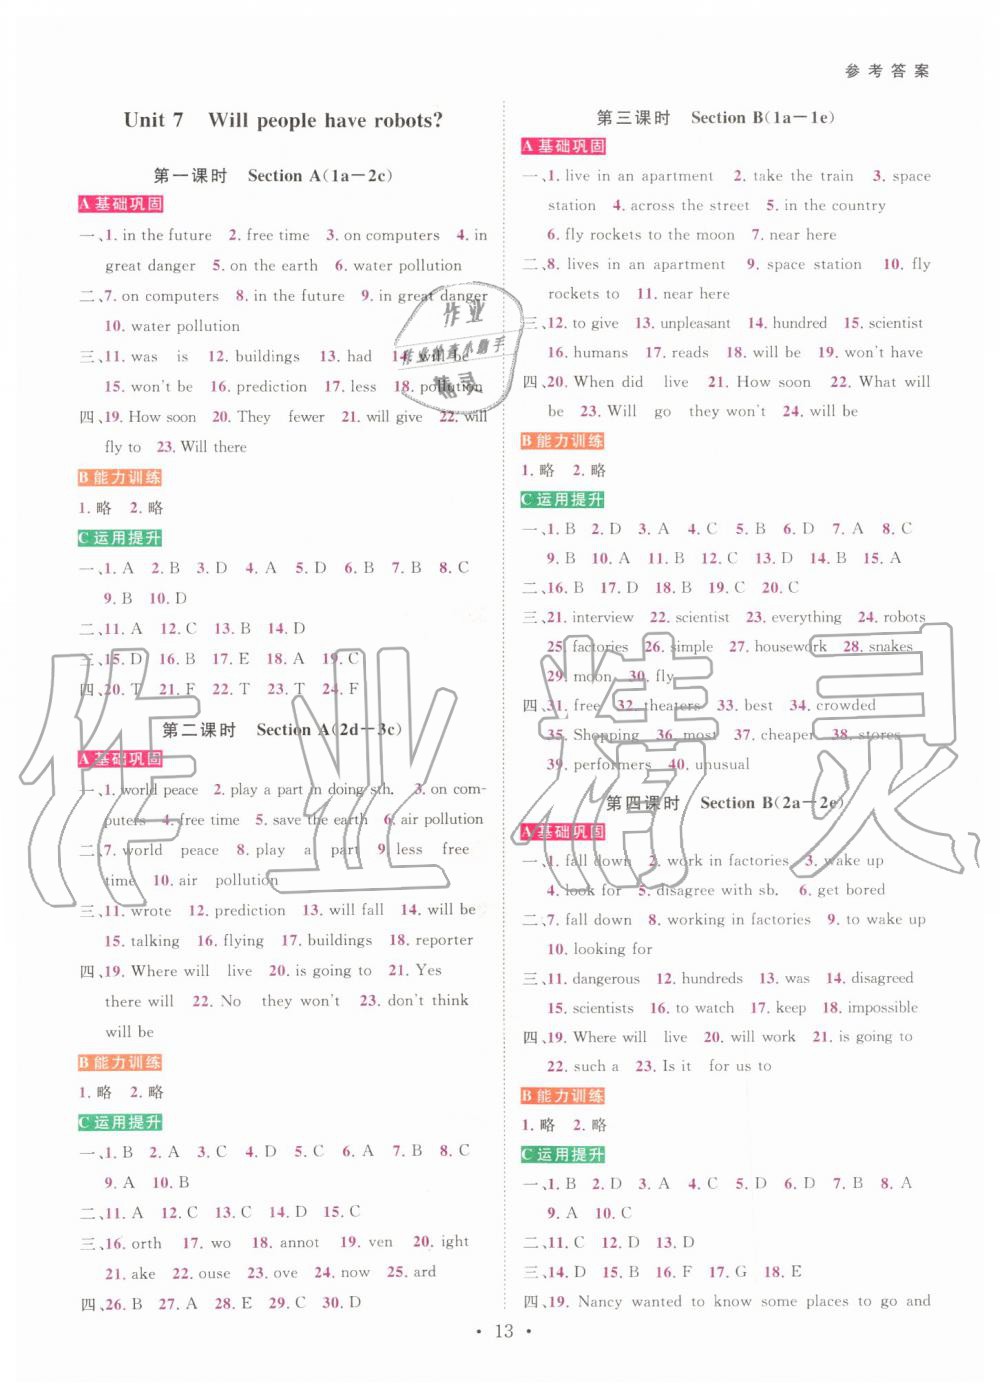 参考答案
Unit 7 Will people have robots?
第一课时 Section A(1a—2c)
A 基础巩固
一、1. in the future 2. free time 3. on computers 4. in
great danger 5. on the earth 6. water pollution
二、7. on computers 8. in the future 9. in great danger
10. water pollution
三、11. was is 12. buildings 13. had 14. will be
15. won't be 16. prediction 17. less 18. pollution
四、19. How soon 20. They fewer 21. will give 22. will
fly to 23. Will there
B 能力训练
1. 略 2. 略
C 运用提升
一、1. A 2. B 3. D 4. A 5. D 6. B 7. B 8. C
9. B 10. D
二、11. A 12. C 13. B 14. D
三、15. D 16. B 17. E 18. A 19. C
四、20. T 21. F 22. T 23. T 24. F
第二课时 Section A(2d—3c)
A 基础巩固
一、1. world peace 2. play a part in doing sth. 3. on com-
puters 4. free time 5. save the earth 6. air pollution
二、7. world peace 8. play a part 9. less free
time 10. air pollution
三、11. wrote 12. prediction 13. will fall 14. will be
15. talking 16. flying 17. buildings 18. reporter
四、19. Where will live 20. is going to 21. Yes
there will 22. No they won't 23. don't think
will be
B 能力训练
1. 略 2. 略
C 运用提升
一、1. B 2. A 3. C 4. D 5. C 6. A 7. B 8. C
9. A 10. B
二、11. A 12. C 13. C 14. D 15. C
三、16. orth 17. wo 18. annot 19. ven 20. ight
21. ake 22. ouse 23. ove 24. now 25. ard
四、26. B 27. A 28. E 29. C 30. D
第三课时 Section B(1a—1e)
A 基础巩固
一、1. live in an apartment 2. take the train 3. space
station 4. across the street 5. in the country
6. fly rockets to the moon 7. near here
二、8. lives in an apartment 9. space station 10. fly
rockets to 11. near here
三、12. to give 13. unpleasant 14. hundred 15. scientist
16. humans 17. reads 18. will be 19. won't have
四、20. When did live 21. How soon 22. What will
be 23. Will go they won't 24. will be
B 能力训练
1. 略 2. 略
C 运用提升
一、1. B 2. D 3. A 4. C 5. B 6. D 7. A 8. C
9. B 10. A 11. B 12. C 13. D 14. B 15. A
二、16. B 17. D 18. B 19. C 20. C
三、21. interview 22. scientist 23. everything 24. robots
25. factories 26. simple 27. housework 28. snakes
29. moon 30. fly
四、31. free 32. theaters 33. best 34. crowded
35. Shopping 36. most 37. cheaper 38. stores
39. performers 40. unusual
第四课时 Section B(2a—2e)
A 基础巩固
一、1. fall down 2. work in factories 3. wake up
4. look for 5. disagree with sb. 6. get bored
二、7. fall down 8. working in factories 9. to wake up
10. looking for
三、11. dangerous 12. hundreds 13. was 14. disagreed
15. scientists 16. to watch 17. keep 18. impossible
四、19. Where will live 20. will work 21. is going to
22. such a 23. Is it for us to
B 能力训练
1. 略 2. 略
C 运用提升
一、1. B 2. D 3. A 4. C 5. D 6. D 7. B 8. A
9. A 10. C
二、11. C 12. D 13. D
三、14. D 15. B 16. F 17. G 18. E
四、19. Nancy wanted to know some places to go and
• 13 •
作业
作业的真小助手
精灵
作业精灵